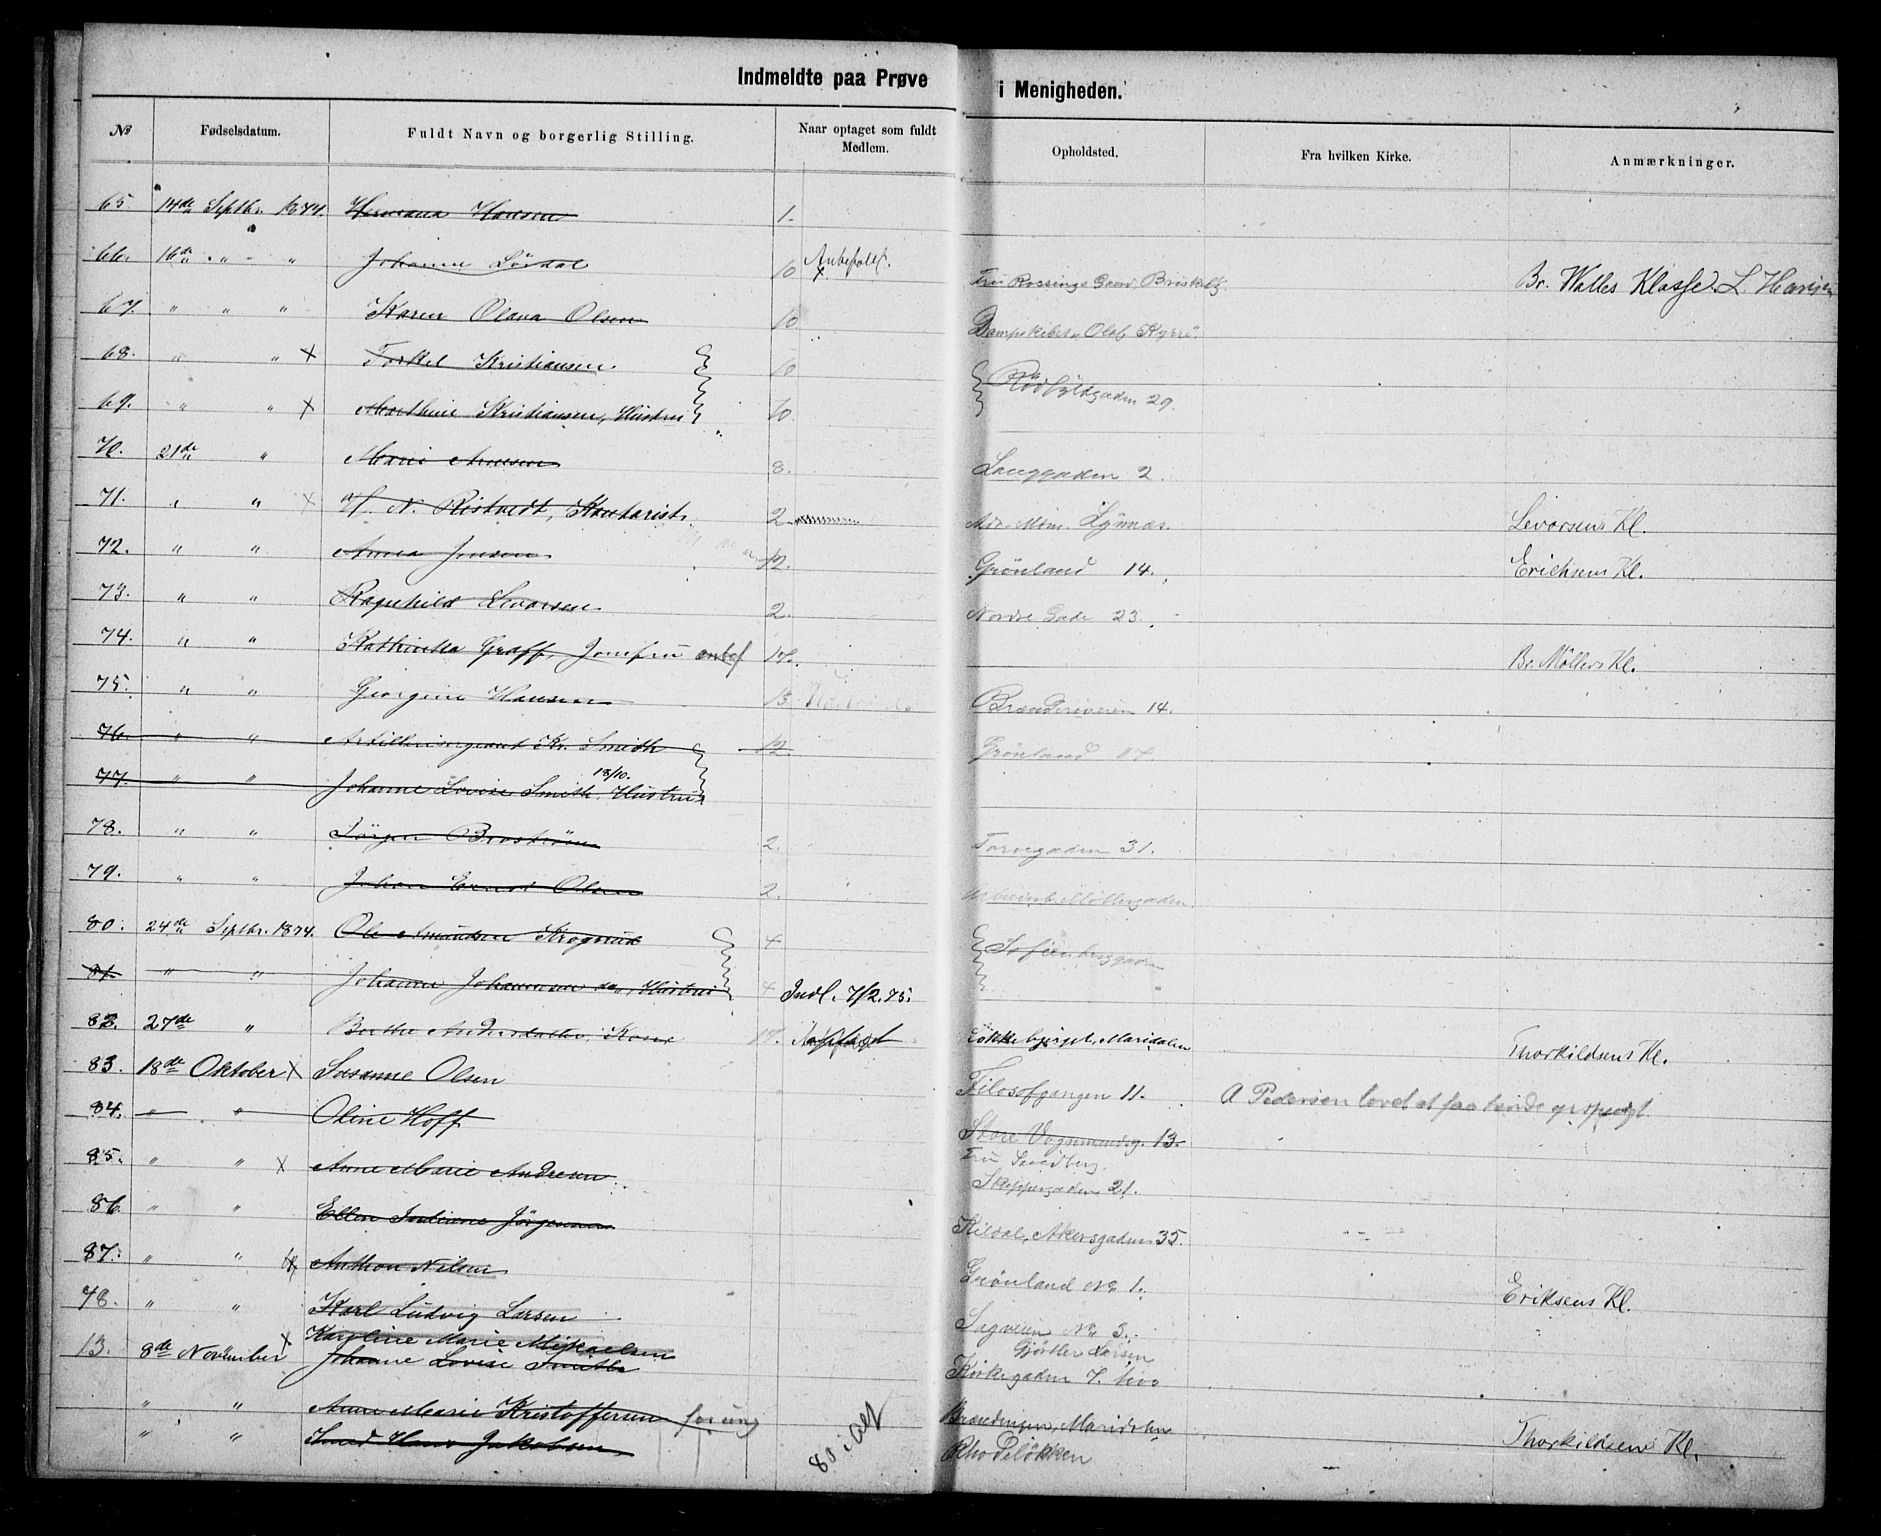 Indmeldte paa Prøve i Menigheden.
№ Fødselsdatum. Fuldt Navn og borgerlig Stilling. Naar optaget som fuldt Medlem. Opholdsted. Fra hvilken Kirke. Anmærkninger.
65. 14de Septbr. 1874. Hermana Hansen 1.
66. 16de " " " Johanne Lövdal 10 Anbefalet. Br. Walles Klasse. L Hansen
67. " " " Karen Olava Olsen 10 Dampskibet Olaf Kyrre
68. " " x Torkel Kristiansen 10 Rödfyldgaden 29.
69. " " x Marthine Kristiansen, Hustru 10
70. 21de " Marie Arnesen 8. Langgaden 2.
71. " " x H. N. Ristvedt, Kontorist. 2. Levorsens Kl.
72. " " Anna Jensen 12. Grönland 14. Erichsens Kl.
73. " " Ragnhild Levorsen 2. Nordre Gade 23.
74. " " Kathinka Graff, Jomfru anbef. 17. Br. Möllers Kl.
75. " " Georgine Hansen 13. Brænderiveien 14.
76. " " Artillerisergeant Kr. Smith 12. Grönland
77. " " Johanne Lovise Smith, Hustru 18/10.
78. " " Jörgen Broström 2. Torvegaden 31.
79. " " Johan Ernst Olsen 2. Möllergaden
80. 24de Septbr. 1874. Ole Amundsen Krogsrud 4 Sofienberggaden
81. " " Johanne Johannesen do, Hustru 4 Indl. 7/2. 75.
82. 27de " Berthe Andersdatter, Kone 17. Løkkebjerget, Maridalen Thorkildsens Kl.
83. 18de Oktober x Susanne Olsen Filosofgangen 11. A Pedersen lovet at faa hende opsøgt
84. " " Oline Hoff Store Vognmandsg. 13.
85. " " x Anne Marie Andresen Fru Sundberg. Skippergaden 21.
86. " " Ellen Juliane Jörgensen Kildal, Akersgaden 35.
87. " " Anthon Nilsen Grönland No 1. Eriksens Kl.
78. " " Karl Ludvig Larsen Sagveien No 3.
x Karoline Marie Mikaelsen Gjörtler Larsen
13. 8de November Johanne Lovise Smith Kirkegaden 7.
" " Anne Marie Kristoffersen for ung Maridalen
" " Smed Hans Jakobsen 80 i Alt Rhodelökken Thorkildsens Kl.